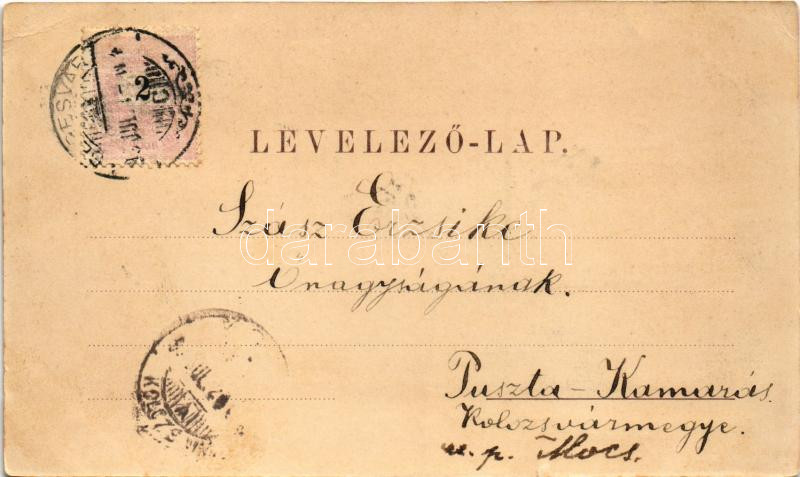 2
LEVELEZŐ-LAP.
Szász Erzsike
Őnagyságának.
Puszta-Kamarás.
Kolozsvármegye.
u. p. Mocs.
darabanth